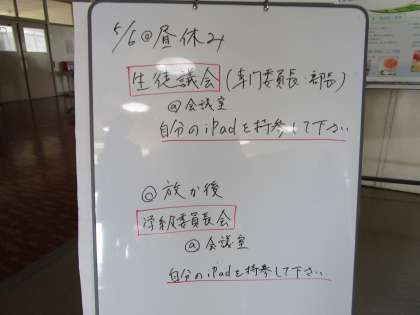 5/6@昼休み
生徒議会(専門委員長・部長)
@会議室
自分のiPadを持参して下さい
◎放か後
学級委員長会
@会議室
自分のiPadを持参して下さい